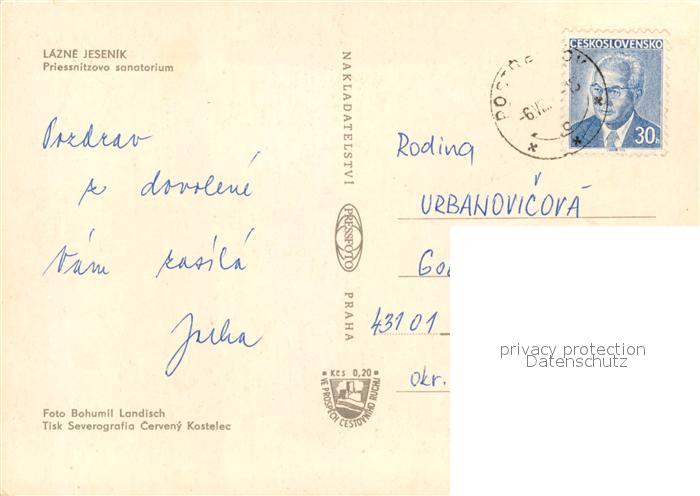 LÁZNĚ JESENÍK
Priessnitzovo sanatorium
Pozdrav
z dovolené
Vám zasílá
Foto Bohumil Landisch
Tisk Severografia Červený Kostelec
NAKLADATELSTVÍ
PRESSFOTO
PRAHA
Kčs 0,20
VE PROSPĚCH CESTOVNÍHO RUCHU
ČESKOSLOVENSKO
30h
-6.VII
Rodina
URBANOVIČOVÁ
431 01
okr.
privacy protection
Datenschutz